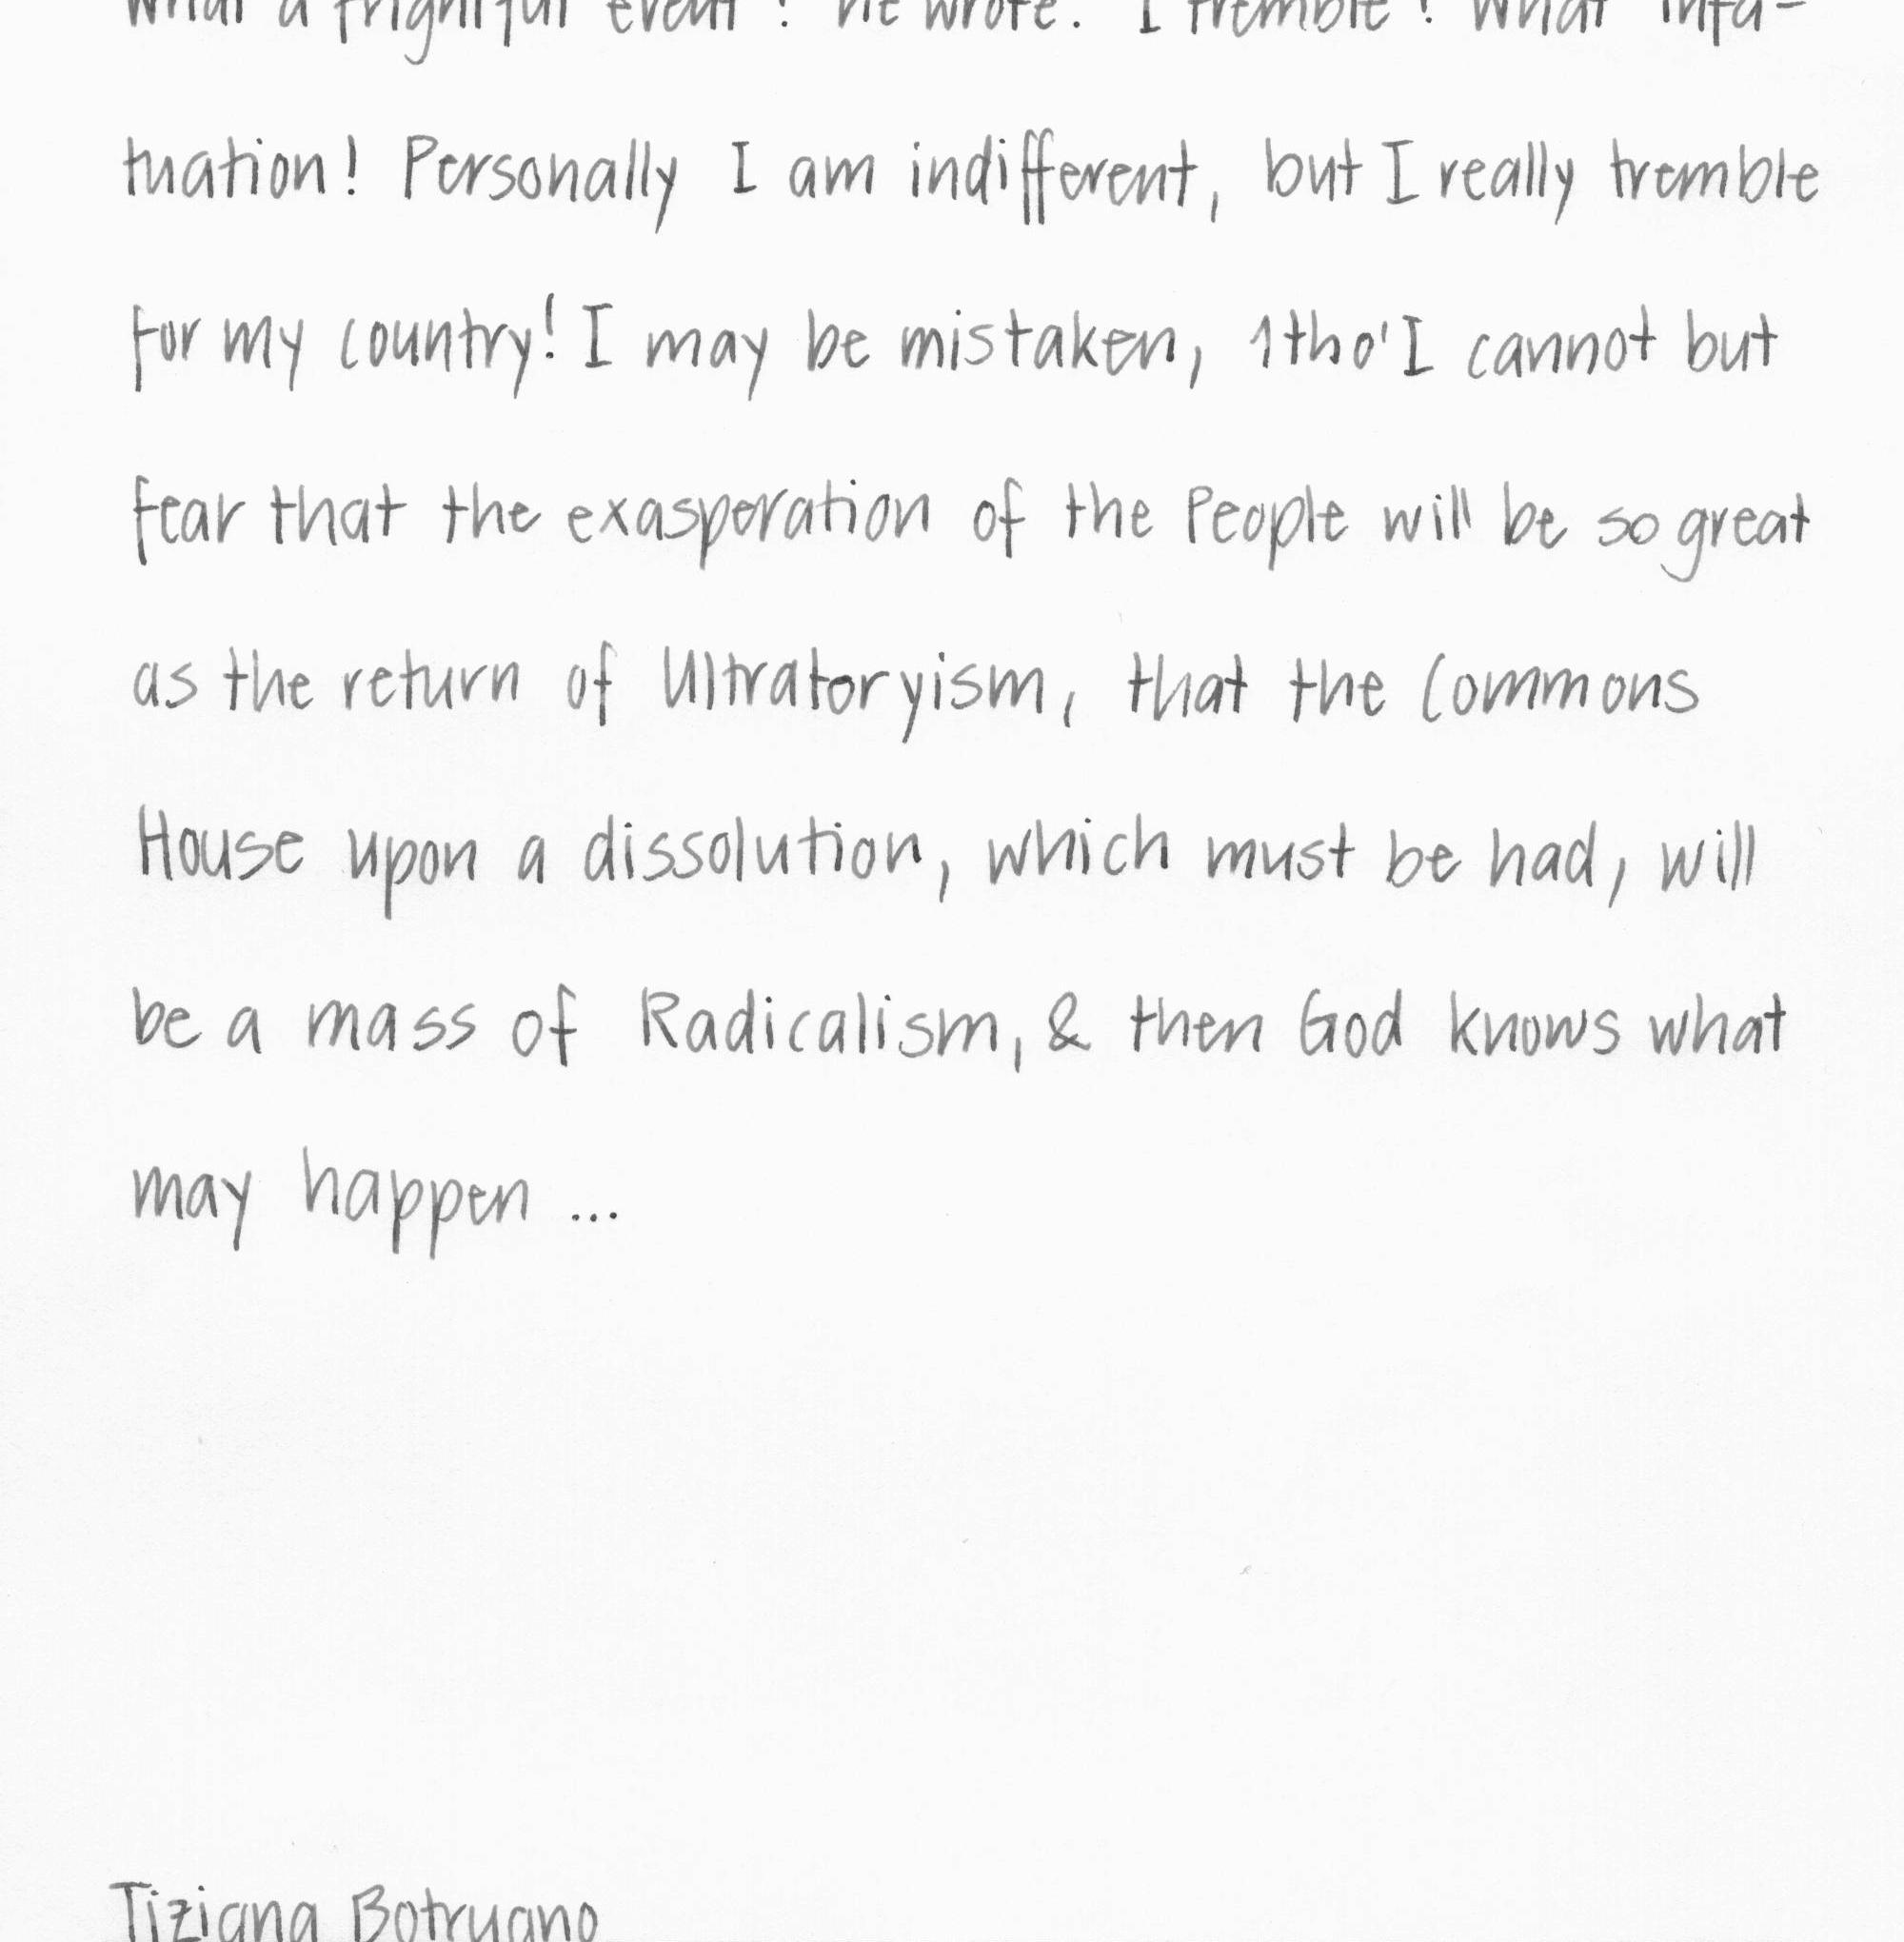 What a frightful event! he wrote. I tremble! What infa-
tuation! Personally I am indifferent, but I really tremble
for my country! I may be mistaken, 1tho'I cannot but
fear that the exasperation of the People will be so great
as the return of Ultratoryism, that the Commons
House upon a dissolution, which must be had, will
be a mass of Radicalism, & then God knows what
may happen ...
Tiziana Botryano